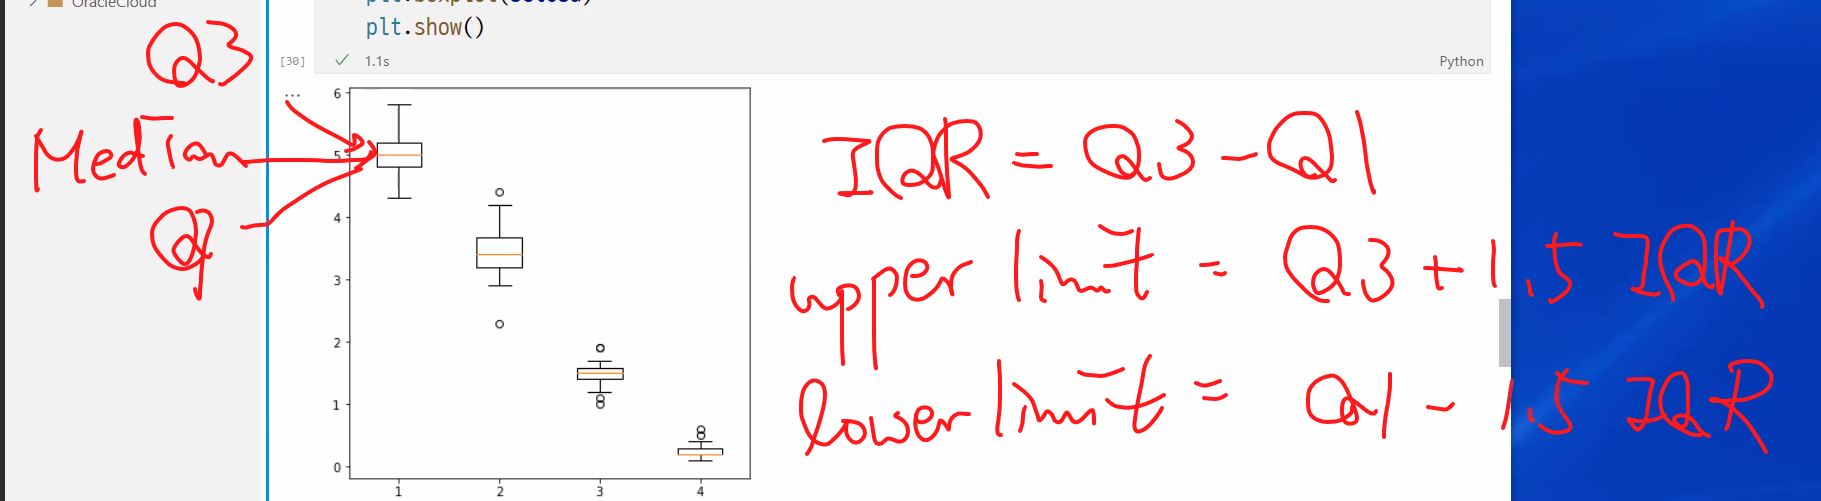 OracleCloud
plt.boxplot(setosa)
plt.show()
[30]
✓ 1.1s
Python
...
Q3
Median
Q1
6
5
4
3
2
1
0
1 2 3 4
IQR = Q3 - Q1
upper limit = Q3 + 1.5 IQR
lower limit = Q1 - 1.5 IQR